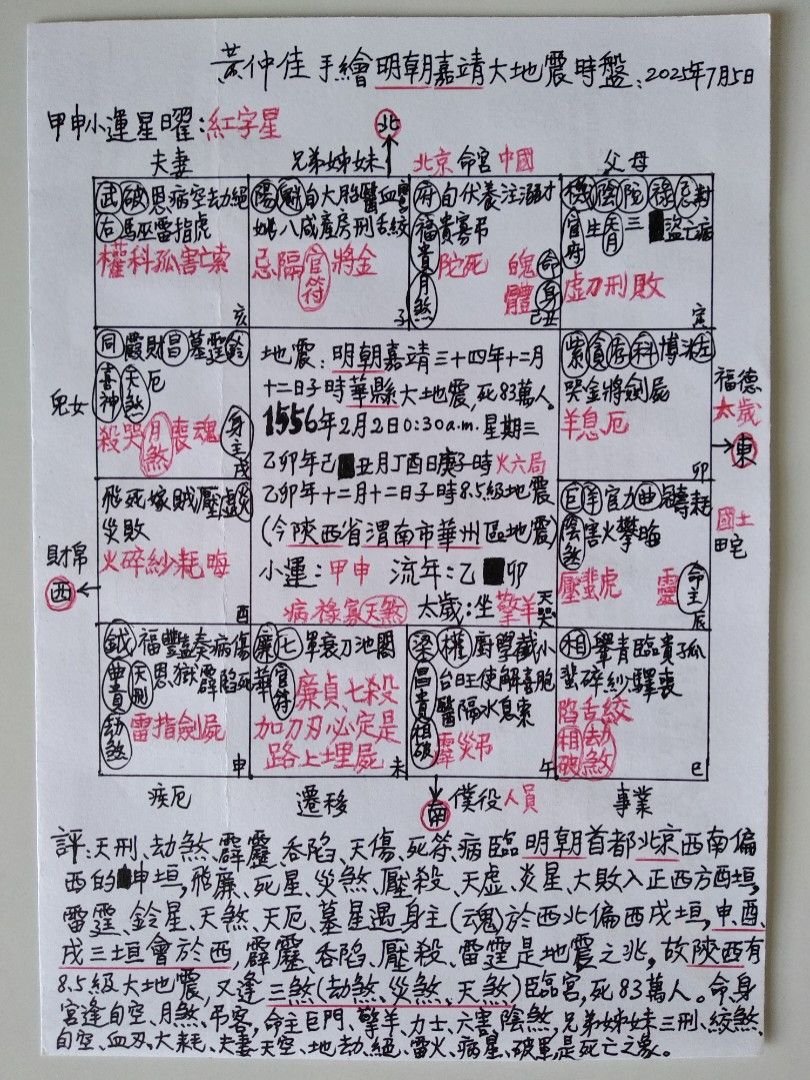 黃仲佳手繪明朝嘉靖大地震時盤:2025年7月5日
甲申小運星曜:紅字星
北
夫妻 兄弟姊妹 北京 命宮 中國 父母
武破恩病空劫絕
右馬巫雷指虎
權科孤害亡索
亥
陽魁自大胎醫血寡
姚八咸產房刑舌絞
忌隔官符將金
子
府自伏養注溺才
福貴寡弔
陀死 魄
體
月煞
命身
己丑
機陰陀祿忌對
官府生天月三盜亡病
虛刀刑敗
寅
兒女
同震財昌墓霆鈴
喜神天煞厄
殺哭月煞喪魂
身主戌
地震:明朝嘉靖三十四年十二月
十二日子時華縣大地震,死83萬人。
1556年2月2日0:30a.m.星期三
乙卯年己丑月丁酉日庚子時火六局
乙卯年十二月十二日子時8.5級地震
(今陝西省渭南市華州區地震)
小運:甲申 流年:乙卯
病祿寡天煞 太歲:坐擎羊天哭
紫貪存科博沐左
哭金將劍屍
羊息厄
卯
福德
太歲
東
財帛
西
飛死嫁賊壓虛炎
災敗
火碎紗耗晦
酉
巨羊官力曲
陰煞害火攀晦
壓蜚虎 靈
命主辰
國土
田宅
鉞福豔奏病傷
曲貴天刑恩獄霹陷死
劫煞雷指劍屍
申
廉七軍衰刀池閣
華官符廉貞、七殺
加刀刃必定是
路上埋屍
未
梁權廚學截小
昌貴台旺使解喜胞
相破醫隔水息索
霹災弔
午
相轝青臨貴孤
蜚碎紗驛喪
陷舌絞
相破劫煞
巳
疾厄 遷移 南 僕役人員 事業
評:天刑、劫煞、霹靂、吞陷、天傷、死符、病臨明朝首都北京西南偏
西的申垣,飛廉、死星、災煞、壓殺、天虛、炎星、大敗入正西方酉垣,
雷霆、鈴星、天煞、天厄、墓星遇身主(魂)於西北偏西戌垣,申、酉、
戌三垣會於西,霹靂、吞陷、壓殺、雷霆是地震之兆,故陝西有
8.5級大地震,又逢三煞(劫煞、災煞、天煞)臨宮,死83萬人。命、身
宮逢自空、月煞、弔客,命主巨門、擎羊、力士、六害、陰煞,兄弟姊妹三刑、絞煞、
自空、血刃、大耗、夫妻天空、地劫、絕、雷火、病星、破軍是死亡之象。